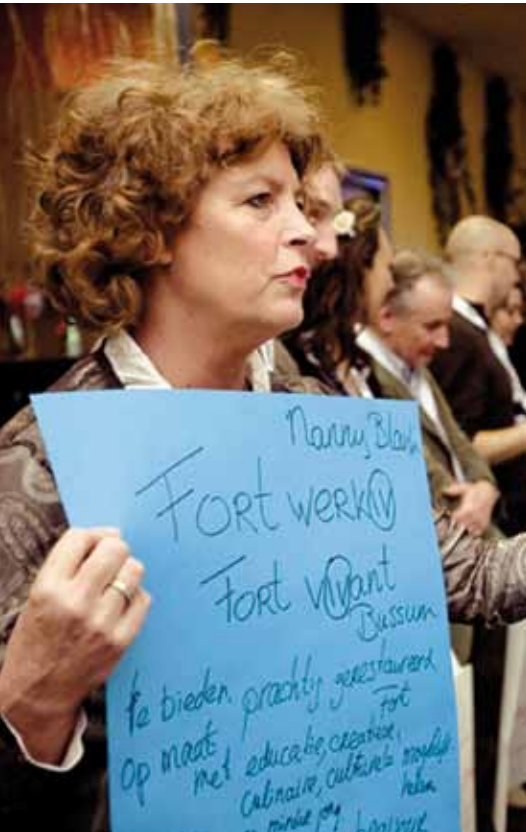 Nanny
Fort werk IV
Fort vivant
Bussum
te bieden prachtig gerestaureerd
Fort
op maat
met educatie, creatieve,
culinaire, culturele mogelijk-
heden
minder jong